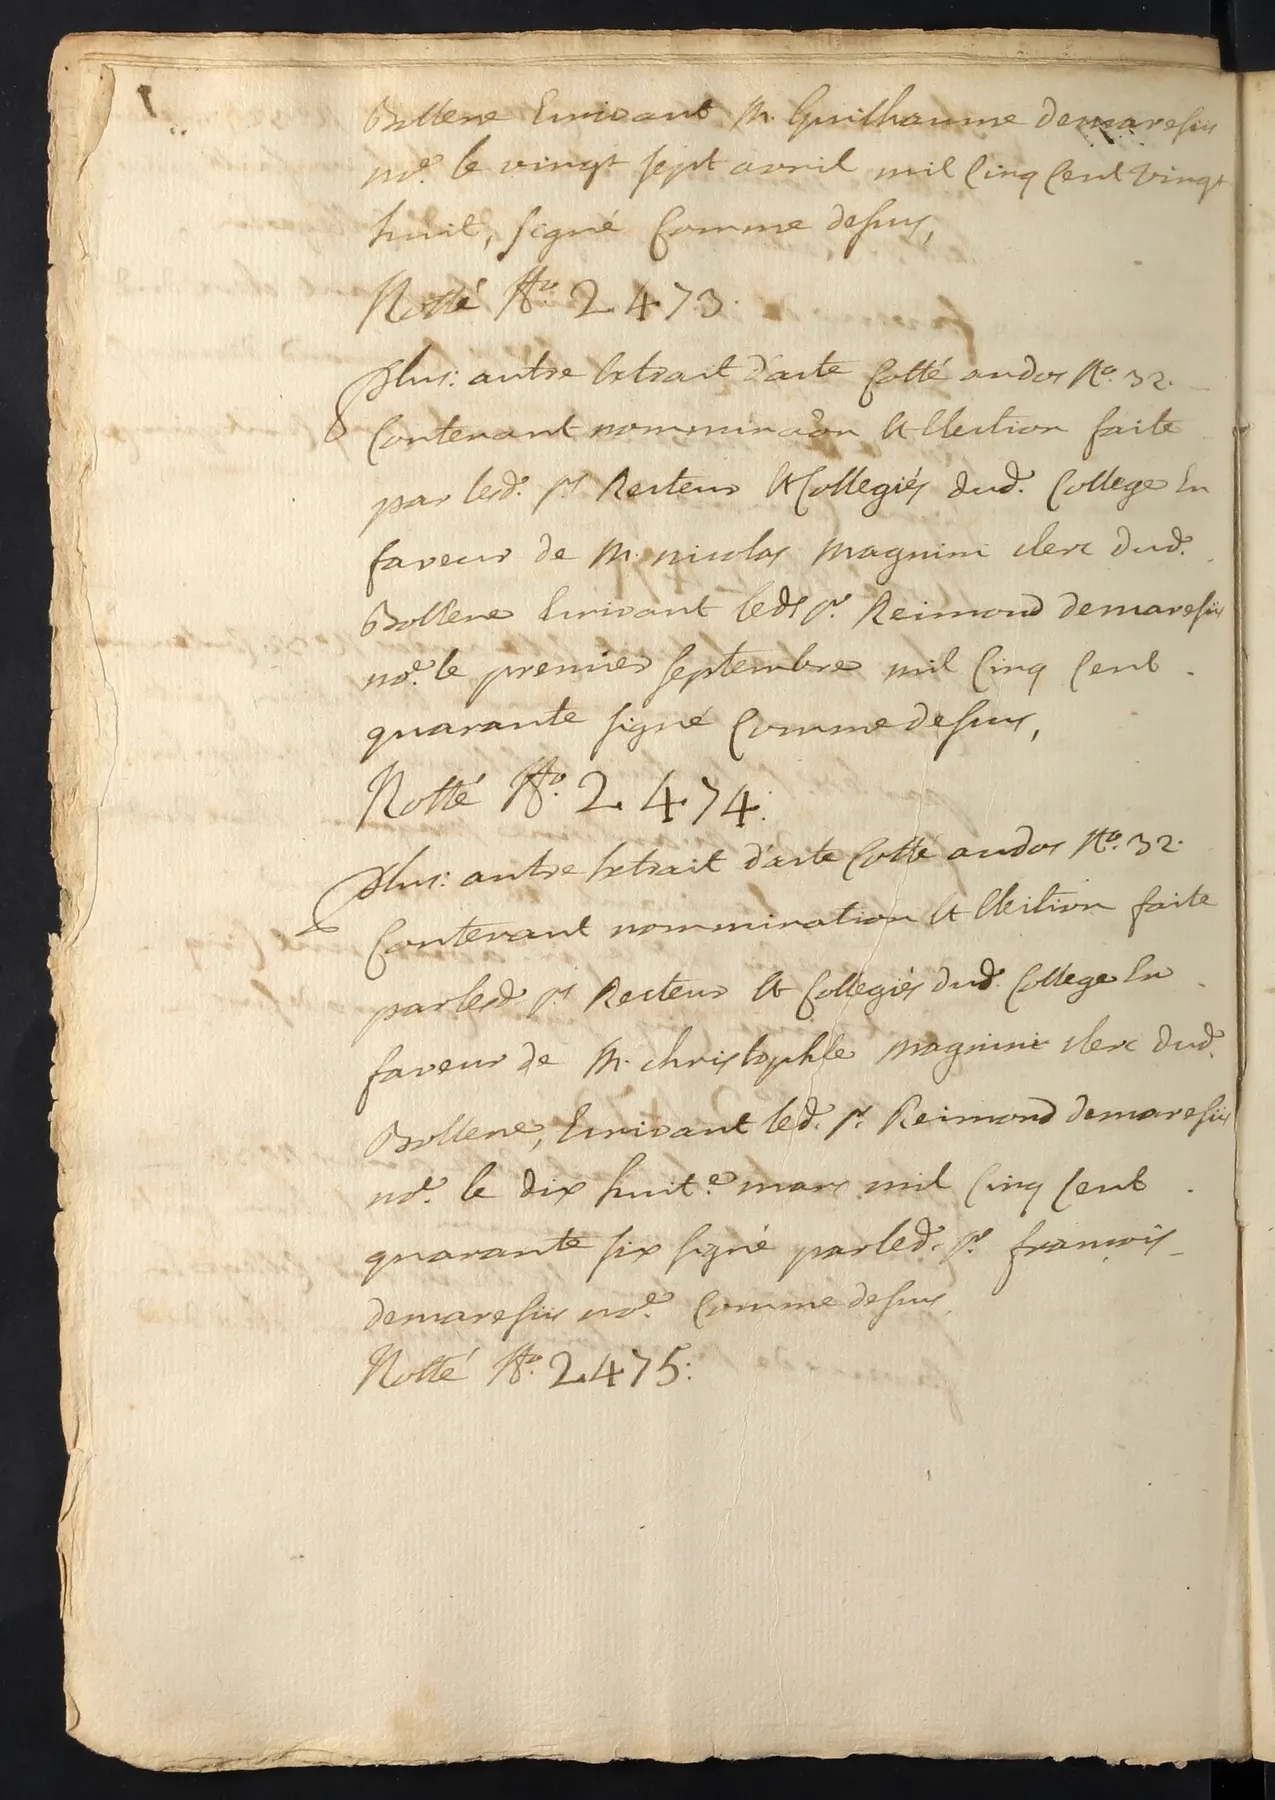 Bollene Ecrivant M. Guilhaume demaresiis
nore. le vingt sept avril mil Cinq Cent vingt
huit, signé Comme dessus,
Notté No. 2473.
Plus: autre Extrait d'acte Cotté au dos No. 32.
Contenant nominaõn et Election faite
par lesd. srs Recteur et Collegiés dud. College En
faveur de M. nicolas magnini clerc dud.
Bollene Ecrivant led. sr. Reimond demaresiis
nore. le premier septembre mil Cinq Cent
quarante signé Comme dessus,
Notté No. 2474.
Plus: autre Extrait d'acte Cotté au dos No. 32.
Contenant nommination et Election faite
par lesd. srs Recteur et Collegiés dud. College En
faveur de M. christophle magnini clerc dud.
Bollene, Ecrivant led. sr. Reimond demaresiis
nore. le dix huite mars mil Cinq Cent
quarante six signé par led. sr. francois
demaresiis nore. Comme dessus.
Notté No. 2475.